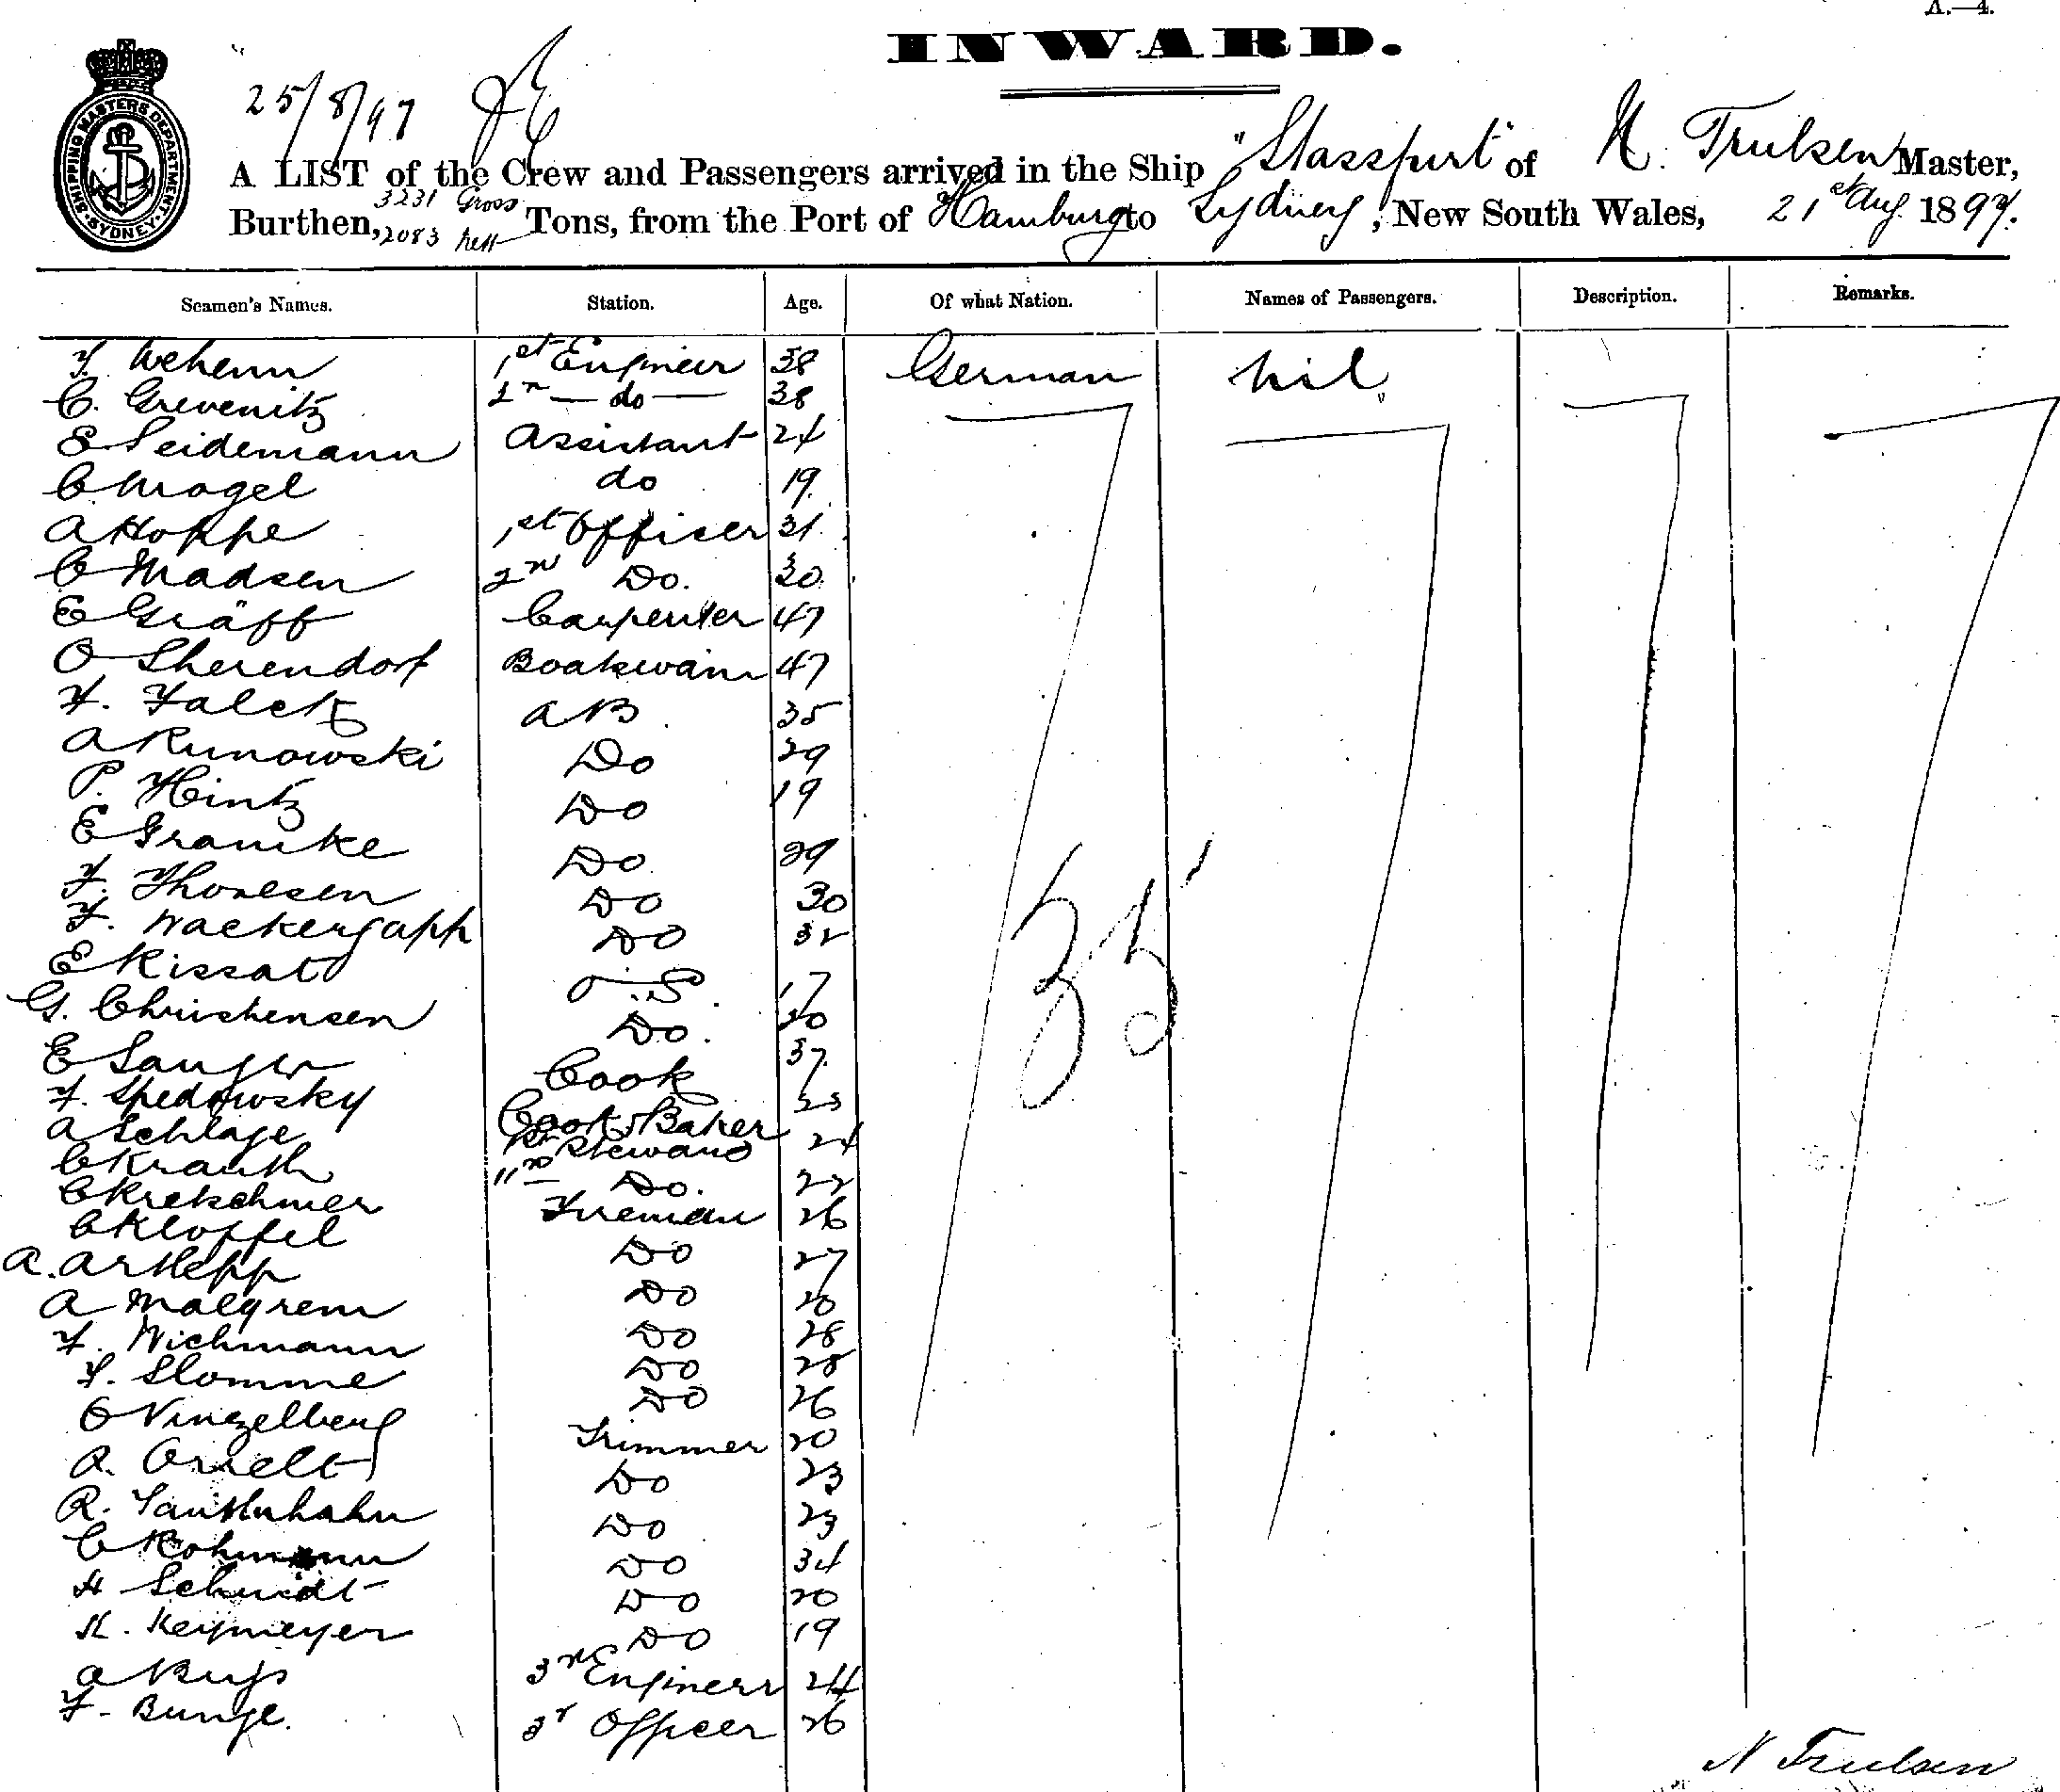 A.—4.
INWARD.
SHIPPING MASTERS DEPARTMENT. SYDNEY
25/8/97
A LIST of the Crew and Passengers arrived in the Ship "Stassfurt" of N. Trulsen Master,
3231 Gross
Burthen, 2083 nett Tons, from the Port of Hamburg to Sydney, New South Wales, 21st Aug. 1897.
Seamen's Names. Station. Age. Of what Nation. Names of Passengers. Description. Remarks.
1st Engineer 38 German nil
C. Grevenitz 2n — do — 38
E Seidemann Assistant 24
C Mogel do 19
A Hoppe 1st Officer 31
C Madsen 2n Do. 30
E Gräff Carpenter 47
O Sherendorf Boatswain 47
F. Falck AB 35
A Runowski Do 29
P. Hintz Do 19
E Gramke Do 29
F. Thoresen Do 30
F. Wackergapp Do 32
E Kissat O.S. 17
G. Christensen Do. 20
E Cook 37
F. Spedowsky Cook & Baker 23
A Schlage 1st Steward 24
C Krauth Do. 22
C Kretschmer Fireman 26
C Kloppel Do 27
A. Do
A Malgrem Do 28
F. Wichmann Do 28
F. Slomme Do 26
O Vinzelberg Trimmer 20
A. Do 23
R. Do 23
C Kohmann Do 34
H Schmidt Do 20
K. Keymeyer Do 19
A Buys 3rd Engineer 24
F. Bunge. 3r Officer 26
35
N Trulsen